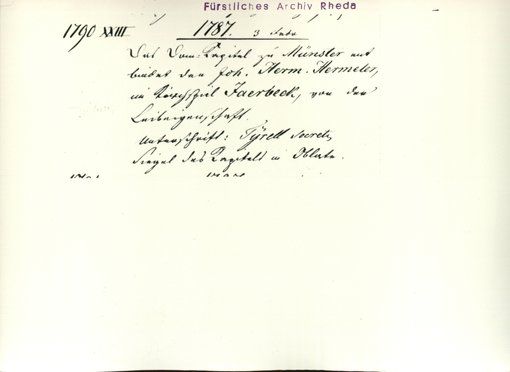 Fürstliches Archiv Rheda
1790 XXIII 1787. 3
Das Dom-Kapitel zu Münster ent
bindet den Joh. Herm. Hermeler,
im Kirchspiel Jaerbeck, von der
Leibeigenschaft.
Unterschrift: Tÿrell Secret.
Siegel des Kapitels in Oblate.